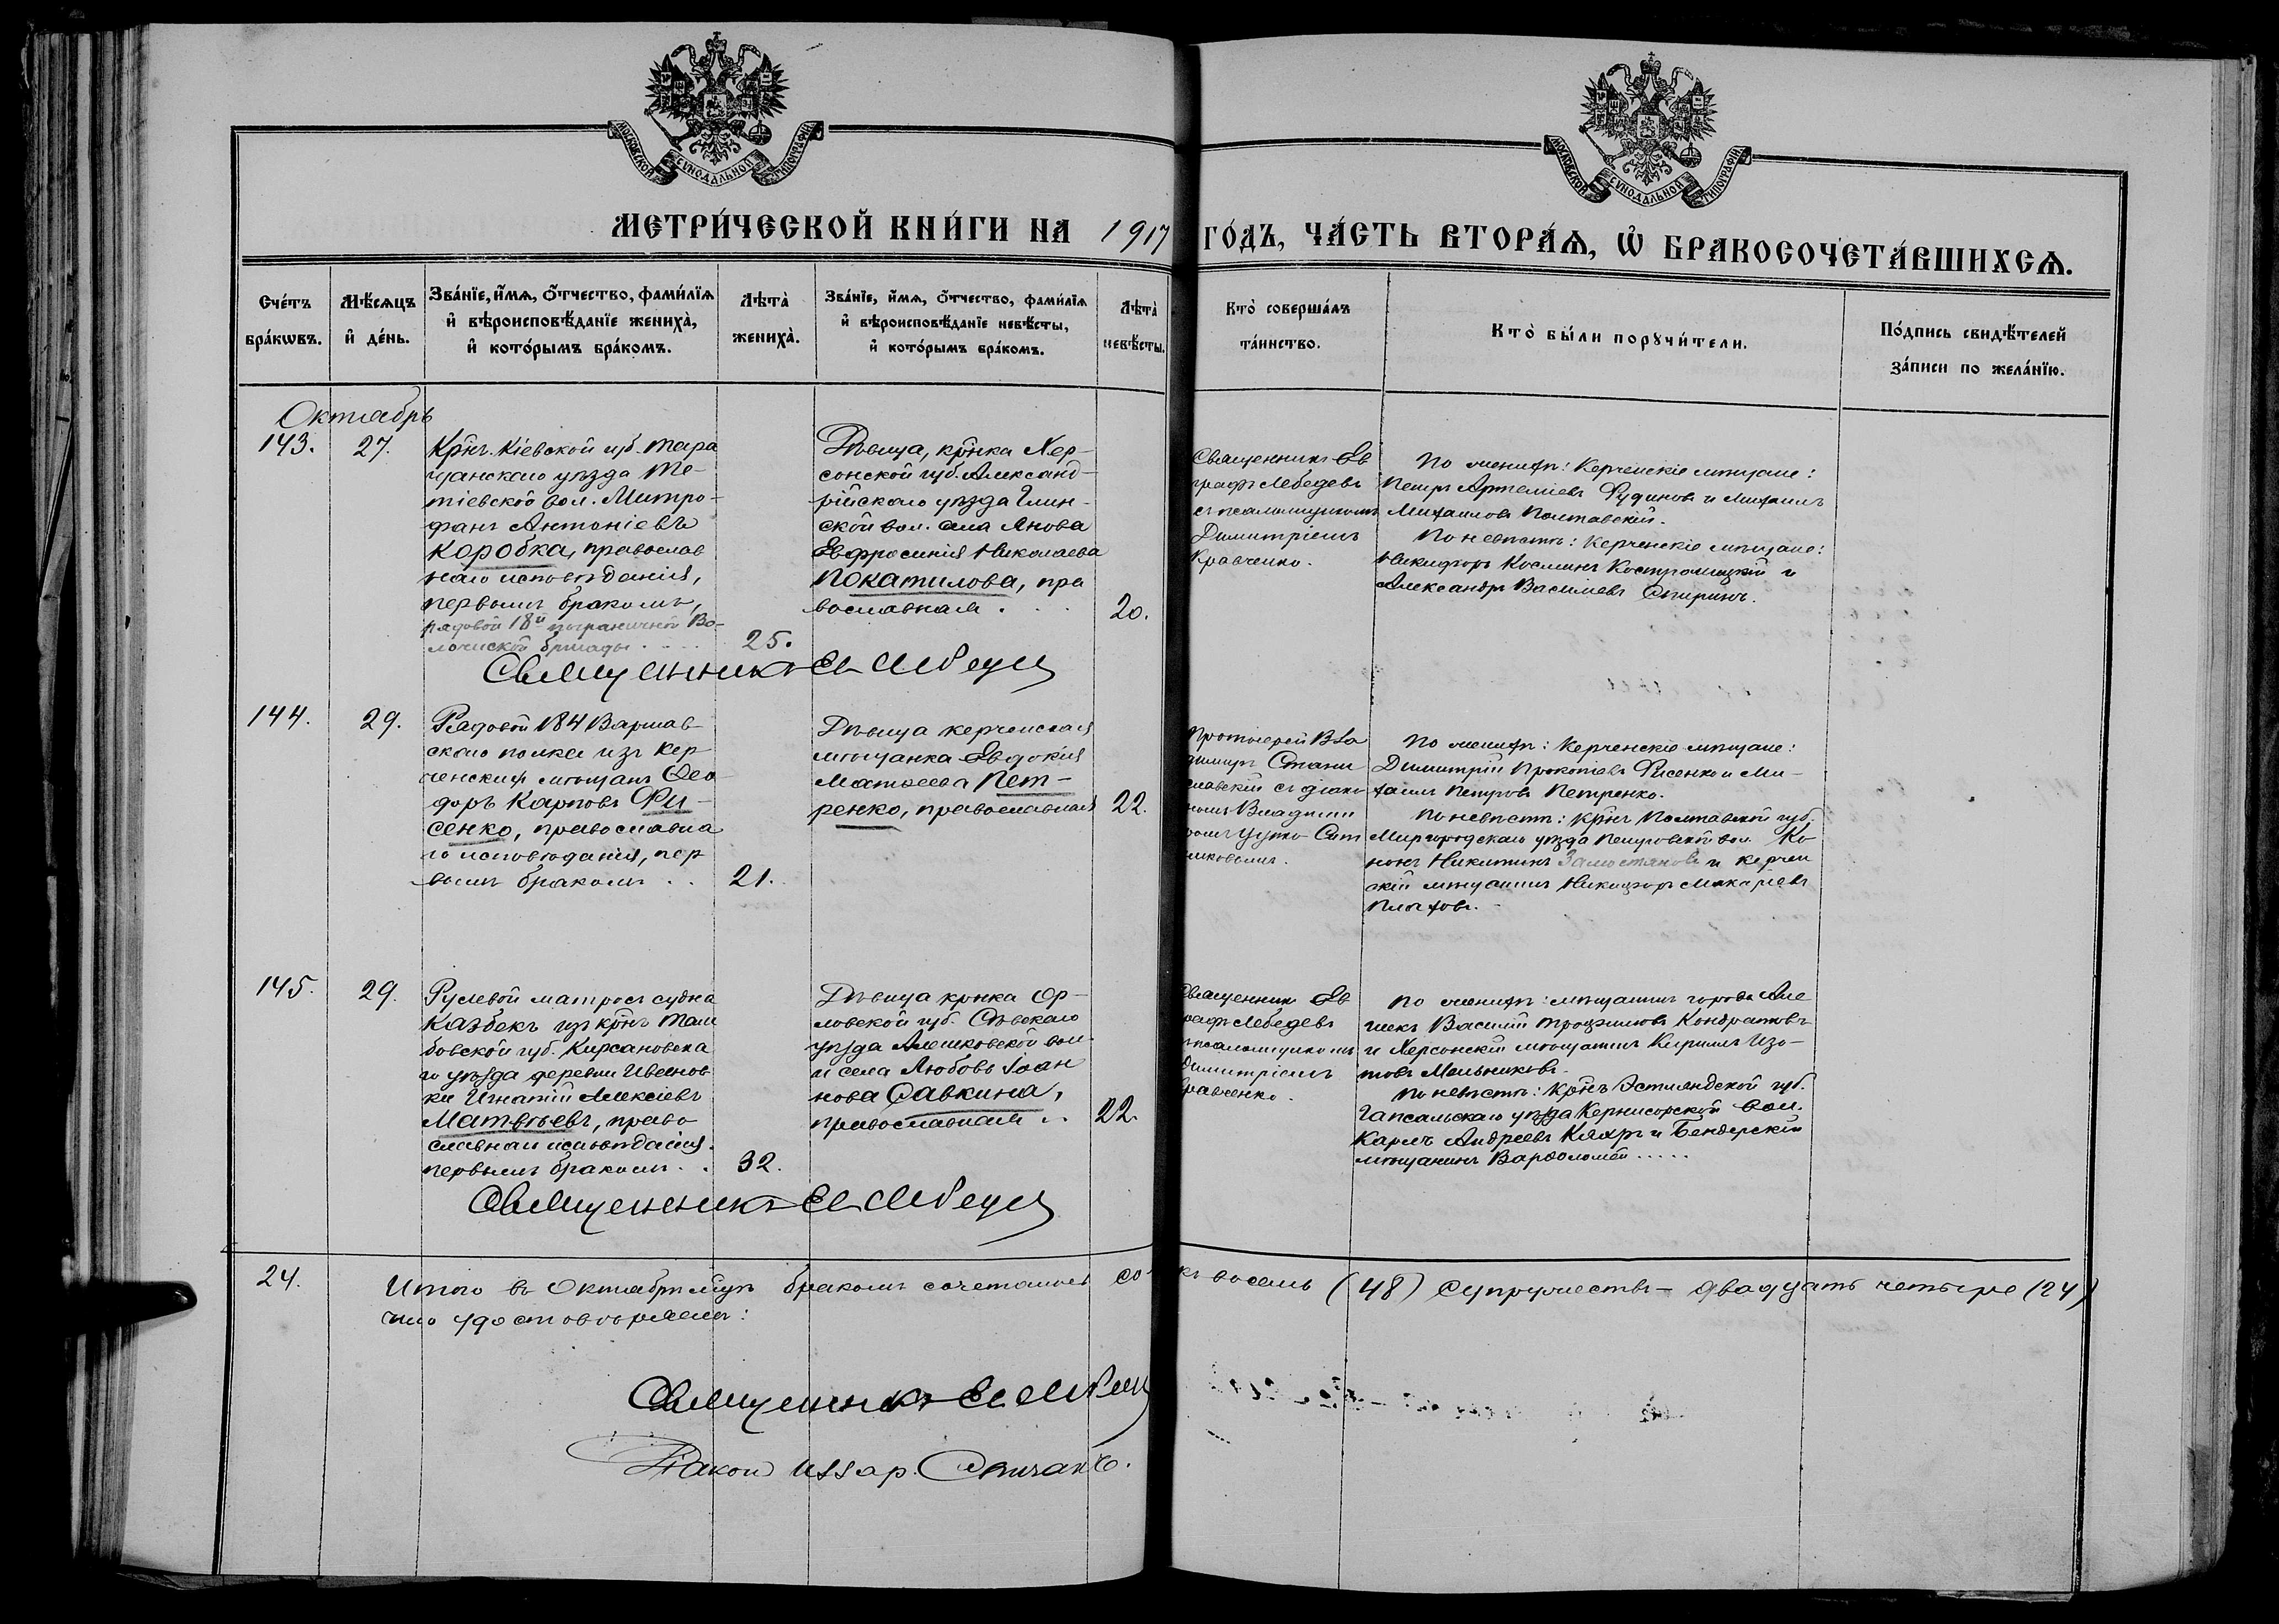 МОСКОВСКОЙ СУНОДАЛЬНОЙ ТИПОГРАФІИ
МОСКОВСКОЙ СУНОДАЛЬНОЙ ТИПОГРАФІИ
МЕТРИ́ЧЕСКОЙ КНИ́ГИ НА 1917 ГО́ДЪ, ЧА́СТЬ ВТОРА́Ѧ, Ѡ҆ БРАКОСОЧЕТА́ВШИХСѦ.
Сче́тъ
бра́кѡвъ.
Мѣ́сѧцъ
и҆ де́нь.
Зва́нїе, и҆́мѧ, ѻ҆́тчество, фами́лїѧ
и҆ вѣроисповѣ́данїе жениха̀,
и҆ кото́рымъ бра́комъ.
Лѣта̀
жениха̀.
Зва́нїе, и҆́мѧ, ѻ҆́тчество, фами́лїѧ
и҆ вѣроисповѣ́данїе невѣ́сты,
и҆ кото́рымъ бра́комъ.
Лѣта̀
невѣ́сты.
Кто̀ соверша́лъ
та́инство.
Кто̀ бы́ли порꙋчи́тели.
По́дпись свидѣ́телей
за́писи по жела́нїю.
Октябрь
143.
27.
Крѣн. Кіевской губ. Тара
щанскаго уѣзда Те-
тіевской вол. Митро-
фанъ Антоніевъ
Коробка, православ
наго исповѣданія,
первымъ бракомъ,
рядовой 18й пограничной Во-
лочиской бригады
25.
Дѣвица, крѣнка Хер-
сонской губ. Александ-
рійскаго уѣзда Глин-
ской вол. села Янова
Евфросинія Николаева
Покатилова, пра
вославная.
20.
Священникъ Ев
графъ Лебедевъ
съ псаломщикомъ
Димитріемъ
Кравченко.
По женихѣ: Керченскіе мѣщане:
Петръ Артеміевъ Рудиковъ и Михаилъ
Михаиловъ Полтавскій.
По невѣстѣ: Керченскіе мѣщане:
Никифоръ Косминъ Костромицкій и
Александръ Василіевъ Спиринъ.
Священникъ Ев Лебедев
144.
29.
Рядовой 184 Варшав-
скаго полка изъ кер
ченскихъ мѣщанъ Ѳео
доръ Карповъ Фи-
сенко, православна
го исповѣданія, пер
вымъ бракомъ . .
21.
Дѣвица керченская
мѣщанка Евдокія
Матѳеева Пет-
ренко, православная
22.
Протоіерей Вла
димиръ Стани
славскій съ діако
номъ Владими
ромъ
По женихѣ: Керченскіе мѣщане:
Димитрій Прокопіевъ Фисенко и Ми-
хаилъ Петровъ Петренко.
По невѣстѣ: крѣн Полтавской губ.
Миргородскаго уѣзда Петровской вол. Ко
нонъ Никитинъ и керчен
скій мѣщанинъ Никифоръ Макаріевъ
Плаховъ.
145.
29.
Рулевой матросъ судна
Казбекъ изъ крѣнъ Там
бовской губ. Кирсановска
го уѣзда деревни Ивanов
ки Игнатій Алексіевъ
Матвѣевъ, право
славнаго исповѣданія.
первымъ бракомъ . .
32.
Дѣвица крѣнка Ор-
ловской губ. Сѣвскаго
уѣзда Алешковской вол-
и села Любовь Іоан
нова Савкина,
православная ..
22.
Священникъ Ев
графъ Лебедевъ
съ псаломщикомъ
Димитріемъ
Кравченко.
По женихѣ: мѣщанинъ города Але
шекъ Василій Трофимовъ Кондратовъ
и Херсонскій мѣщанинъ Кирилъ Изо-
товъ Мельниковъ.
По невѣстѣ: крѣнъ Эстляндской губ.
Гапсальскаго уѣзда вол.
Карлъ Андреевъ Кяхръ и Бендерскій
мѣщанинъ Варѳоломей .....
Священникъ Ев Лебедев
24.
Итого въ Октябрѣ мцѣ бракомъ сочеталось со-
къ восемь (48) супружествъ — двадцать четыре (24)
что удостовѣряемъ:
Священникъ Ев Лебедев
Діаконъ